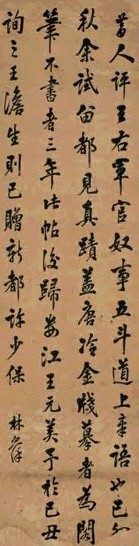 昔人评王右軍官奴事五斗道上章語也己知
秋余試留都見真蹟盖唐冷金牋摹者為閣
筆不書者三年此帖後歸婁江王元美予於己丑
詢之王澹生則已贈新都許少保 林